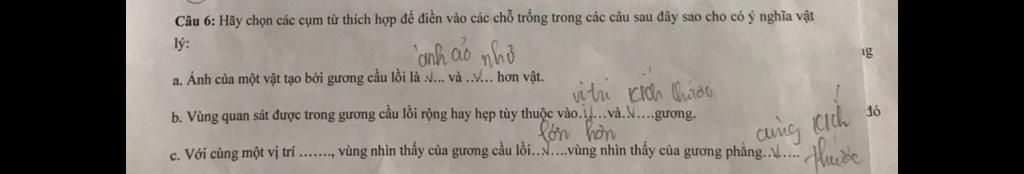 Câu 6: Hãy chọn các cụm từ thích hợp để điền vào các chỗ trống trong các câu sau đây sao cho có ý nghĩa vật
lý:
ảnh ảo nhỏ
ng
a. Ảnh của một vật tạo bởi gương cầu lồi là ..... và ..... hơn vật.
vị trí kích thước
b. Vùng quan sát được trong gương cầu lồi rộng hay hẹp tùy thuộc vào.....và.....gương.
đó
lớn hơn
cùng kích thước
c. Với cùng một vị trí ........, vùng nhìn thấy của gương cầu lồi......vùng nhìn thấy của gương phẳng......